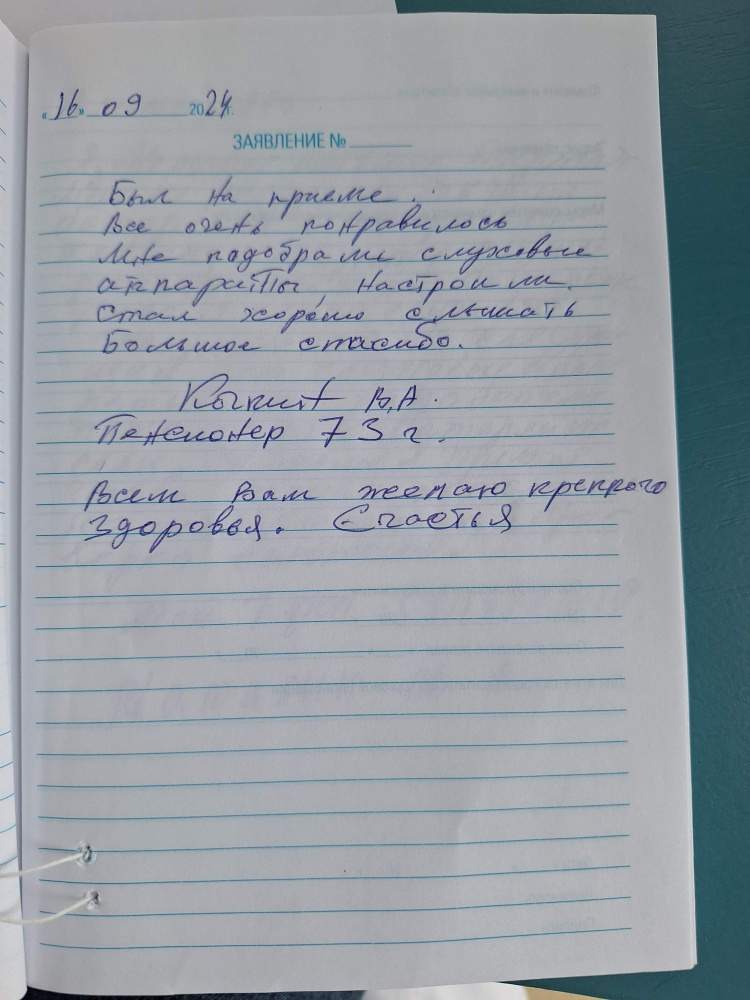 «16» 09 2024 г.
ЗАЯВЛЕНИЕ №
Был на приеме.
Все очень понравилось
Мне подобрали слуховые
аппараты, настроили.
Стал хорошо слышать
Большое спасибо.
В.А.
Пенсионер 73 г.
Всем Вам желаю крепкого
Здоровья. Счастья